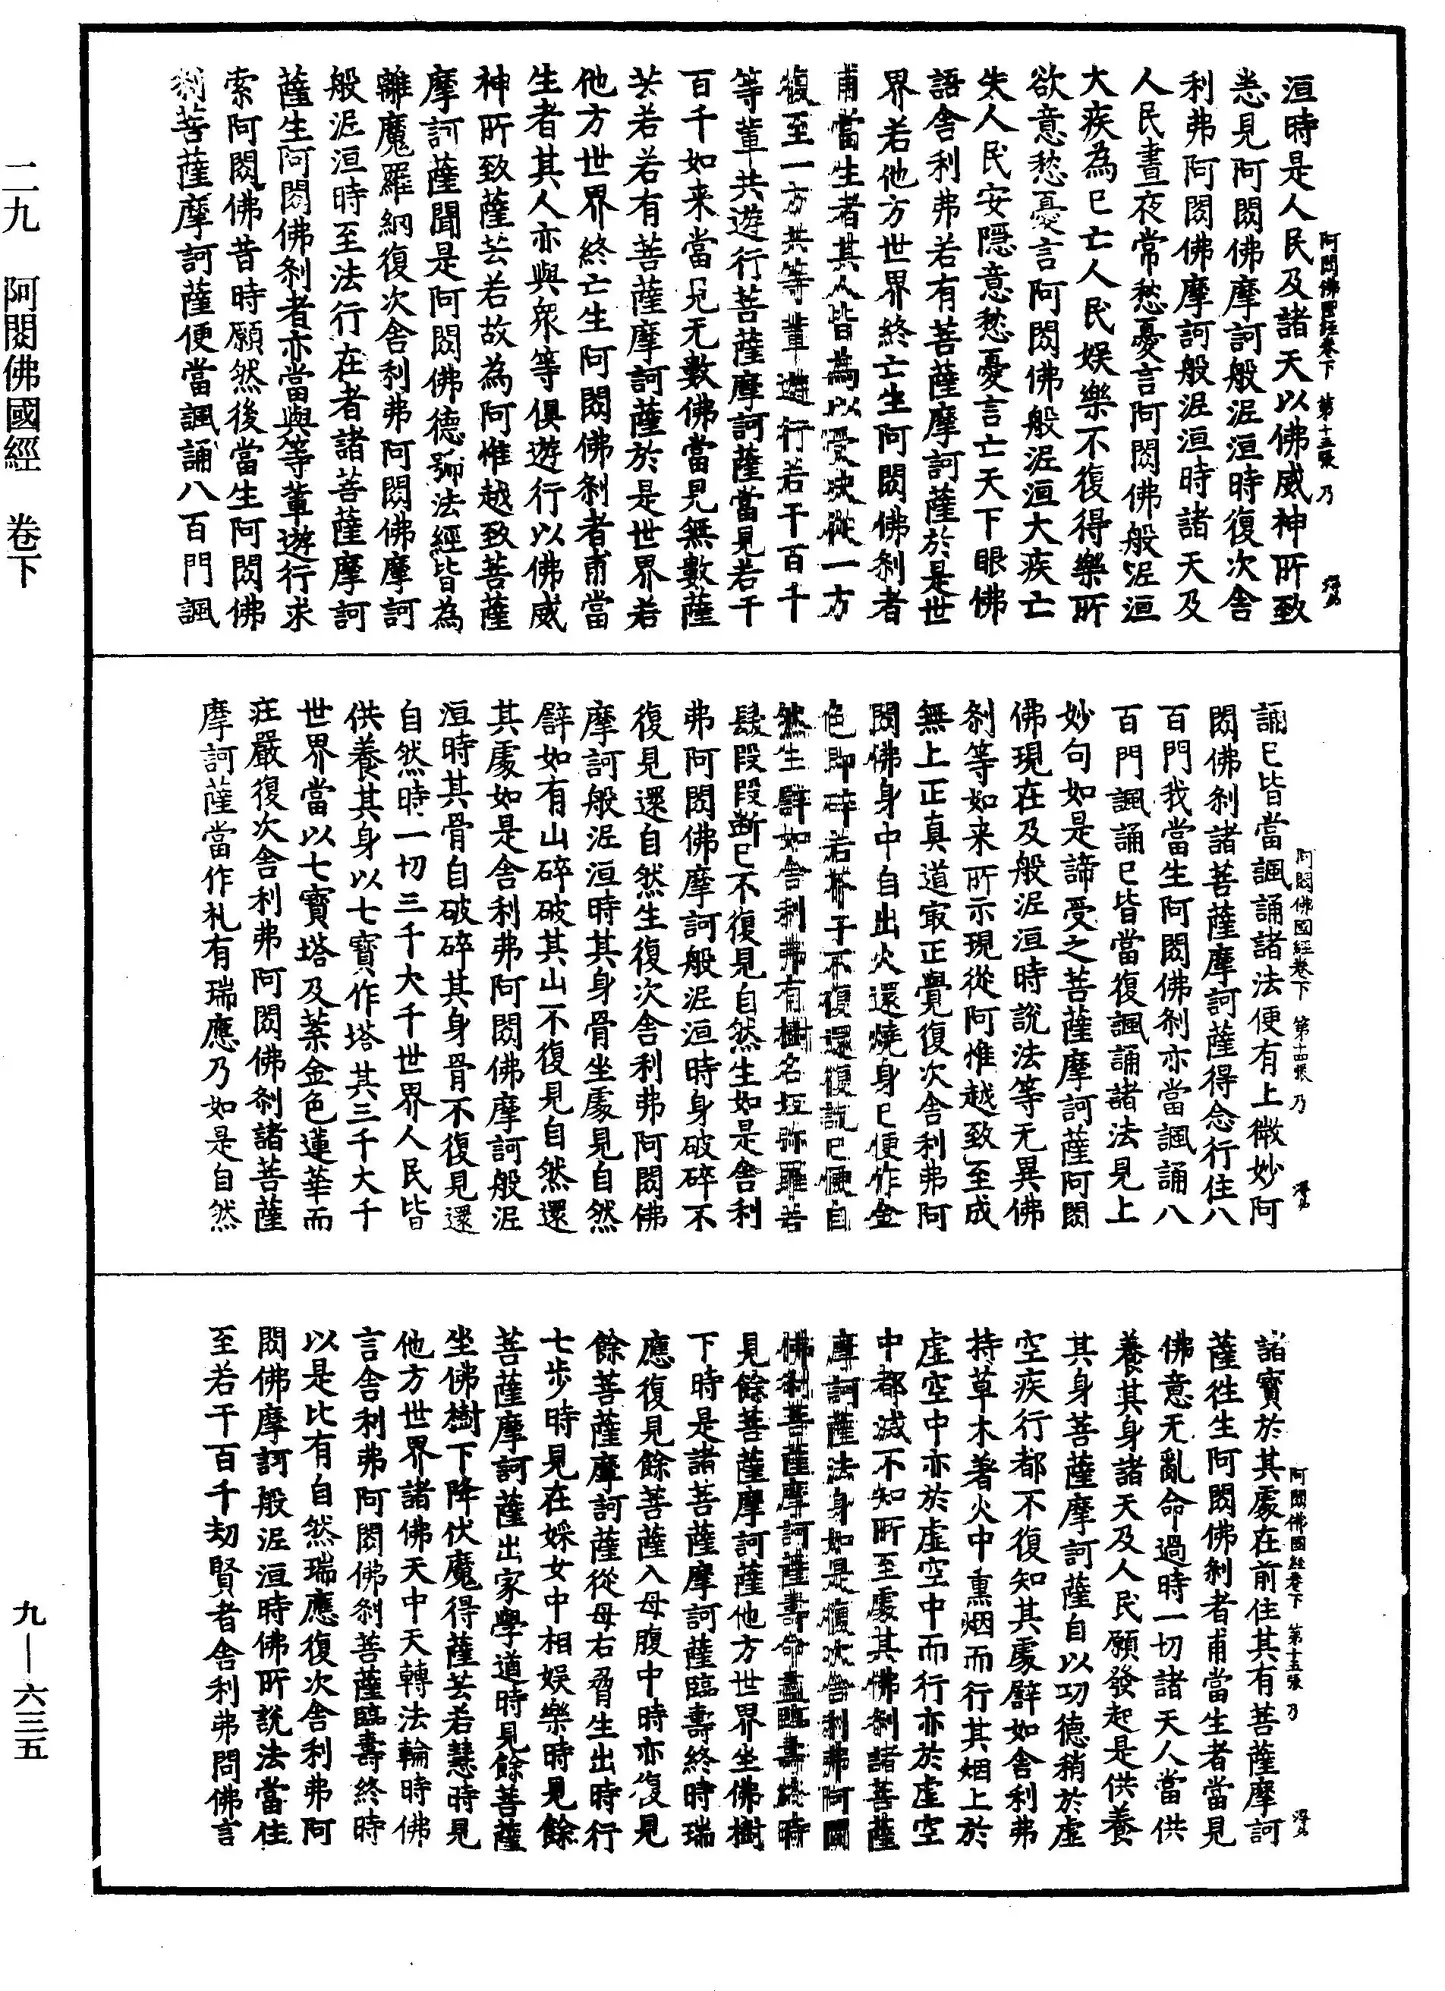 洹時是人民及諸天以佛威神所致
悉見阿閦佛摩訶般泥洹時復次舍
利弗阿閦佛摩訶般泥洹時諸天及
人民晝夜常愁憂言阿閦佛般泥洹
大疾為已亡人民娛樂不復得樂所
欲意愁憂言阿閦佛般泥洹大疾亡
失人民安隱意愁憂言亡天下眼佛
語舍利弗若有菩薩摩訶薩於是世
界若他方世界終亡生阿閦佛剎者
甫當生者其人皆為以受決從一方
復至一方共等輩遊行若干百千
等輩共遊行菩薩摩訶薩當見若干
百千如来當見无數佛當見無數薩
芸若若有菩薩摩訶薩於是世界若
他方世界終亡生阿閦佛剎者甫當
生者其人亦與衆等俱遊行以佛威
神所致薩芸若故為阿惟越致菩薩
摩訶薩聞是阿閦佛德號法經皆為
離魔羅網復次舍利弗阿閦佛摩訶
般泥洹時至法行在者諸菩薩摩訶
薩生阿閦佛剎者亦當與等輩遊行求
索阿閦佛昔時願然後當生阿閦佛
剎菩薩摩訶薩便當諷誦八百門諷
阿閦佛國經卷下 第十三張 乃
誦已皆當諷誦諸法便有上微妙阿
閦佛剎諸菩薩摩訶薩得念行住八
百門我當生阿閦佛剎亦當諷誦八
百門諷誦已皆當復諷誦諸法見上
妙句如是諦受之菩薩摩訶薩阿閦
佛現在及般泥洹時說法等无異佛
剎等如来所示現從阿惟越致至成
無上正真道冣正覺復次舍利弗阿
閦佛身中自出火還燒身已便作金
色即碎若芥子不復還復說已便自
然生譬如舍利弗有樹名坻弥羅若
髮段段斷已不復見自然生如是舍利
弗阿閦佛摩訶般泥洹時身破碎不
復見還自然生復次舍利弗阿閦佛
摩訶般泥洹時其身骨坐處見自然
譬如有山碎破其山不復見自然還
其處如是舍利弗阿閦佛摩訶般泥
洹時其骨自破碎其身骨不復見還
自然時一切三千大千世界人民皆
供養其身以七寶作塔其三千大千
世界當以七寶塔及葉金色蓮華而
莊嚴復次舍利弗阿閦佛剎諸菩薩
摩訶薩當作礼有瑞應乃如是自然
阿閦佛國經卷下 第十四張 乃
諸寶於其處在前住其有菩薩摩訶
薩徃生阿閦佛剎者甫當生者當見
佛意无亂命過時一切諸天人當供
養其身諸天及人民願發起是供養
其身菩薩摩訶薩自以功德稍於虛
空疾行都不復知其處譬如舍利弗
持草木著火中熏烟而行其烟上於
虛空中亦於虛空中而行亦於虛空
中都滅不知所至處其佛剎諸菩薩
摩訶薩法身如是復次舍利弗阿閦
佛剎菩薩摩訶薩壽命盡臨壽終時
見餘菩薩摩訶薩他方世界坐佛樹
下時是諸菩薩摩訶薩臨壽終時瑞
應復見餘菩薩入母腹中時亦復見
餘菩薩摩訶薩從母右脅生出時行
七步時見在婇女中相娛樂時見餘
菩薩摩訶薩出家學道時見餘菩薩
坐佛樹下降伏魔得薩芸若慧時見
他方世界諸佛天中天轉法輪時佛
言舍利弗阿閦佛剎菩薩臨壽終時
以是比有自然瑞應復次舍利弗阿
閦佛摩訶般泥洹時佛所說法當住
至若干百千劫賢者舍利弗問佛言
阿閦佛國經卷下 第十五張 乃
二九 阿閦佛國經 卷下
九—六三五